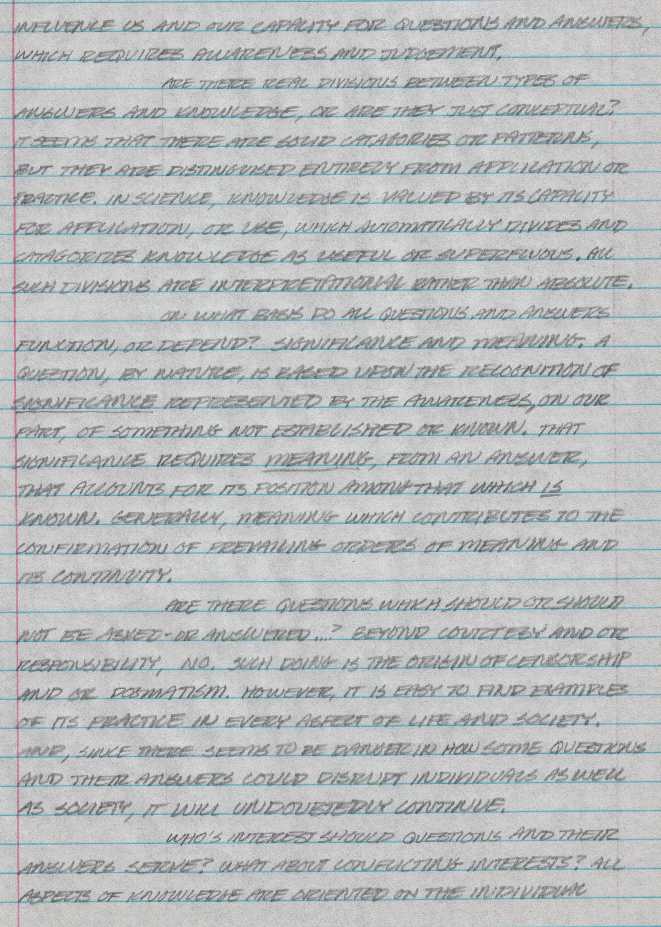 INFLUENCE US AND OUR CAPACITY FOR QUESTIONS AND ANSWERS,
WHICH REQUIRES AWARENESS AND JUDGEMENT.
ARE THERE REAL DIVISIONS BETWEEN TYPES OF
ANSWERS AND KNOWLEDGE, OR ARE THEY JUST CONCEPTUAL?
IT SEEMS THAT THERE ARE SOLID CATAGORIES OR PATTERNS,
BUT THEY ARE DISTINGUISED ENTIRELY FROM APPLICATION OR
PRACTICE. IN SCIENCE, KNOWLEDGE IS VALUED BY ITS CAPACITY
FOR APPLICATION, OR USE, WHICH AUTOMATICALLY DIVIDES AND
CATAGORIZES KNOWLEDGE AS USEFUL OR SUPERFLUOUS. ALL
SUCH DIVISIONS ARE INTERPRETATIONAL RATHER THAN ABSOLUTE.
ON WHAT BASIS DO ALL QUESTIONS AND ANSWERS
FUNCTION, OR DEPEND? SIGNIFICANCE AND MEANING. A
QUESTION, BY NATURE, IS BASED UPON THE RECOGNITION OF
SIGNIFICANCE REPRESENTED BY THE AWARENESS, ON OUR
PART, OF SOMETHING NOT ESTABLISHED OR KNOWN. THAT
SIGNIFICANCE REQUIRES MEANING, FROM AN ANSWER,
THAT ACCOUNTS FOR ITS POSITION AMONG THAT WHICH IS
KNOWN. GENERALLY, MEANING WHICH CONTRIBUTES TO THE
CONFIRMATION OF PREVAILING ORDERS OF MEANING AND
ITS CONTINUITY.
ARE THERE QUESTIONS WHICH SHOULD OR SHOULD
NOT BE ASKED - OR ANSWERED...? BEYOND COURTESY AND OR
RESPONSIBILITY, NO. SUCH DOING IS THE ORIGIN OF CENSORSHIP
AND OR DOGMATISM. HOWEVER, IT IS EASY TO FIND EXAMPLES
OF ITS PRACTICE IN EVERY ASPECT OF LIFE AND SOCIETY.
AND, SINCE THERE SEEMS TO BE DANGER IN HOW SOME QUESTIONS
AND THEIR ANSWERS COULD DISRUPT INDIVIDUALS AS WELL
AS SOCIETY, IT WILL UNDOUBTEDLY CONTINUE.
WHO'S INTEREST SHOULD QUESTIONS AND THEIR
ANSWERS SERVE? WHAT ABOUT CONFLICTING INTERESTS? ALL
ASPECTS OF KNOWLEDGE ARE ORIENTED ON THE INDIVIDUAL